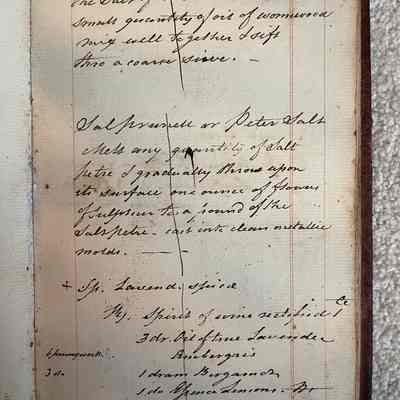 small quantity of oil of wormwood
mix well together & sift
thro a coarse sieve. —
Sal prunell or Peter Salt
Melt any quantity of Salt
petre & gradually throw upon
its surface one ounce of flowers
of sulphur to a pound of the
Saltpetre – cast into clean metallic
molds. —
+ Sp. Lavend. spice
Rx. Spirit of wine rectified 1
3 dr. Oil of true Lavender
Ambergris
3 do 1 dram Bergamot
1 do Essence Lemons